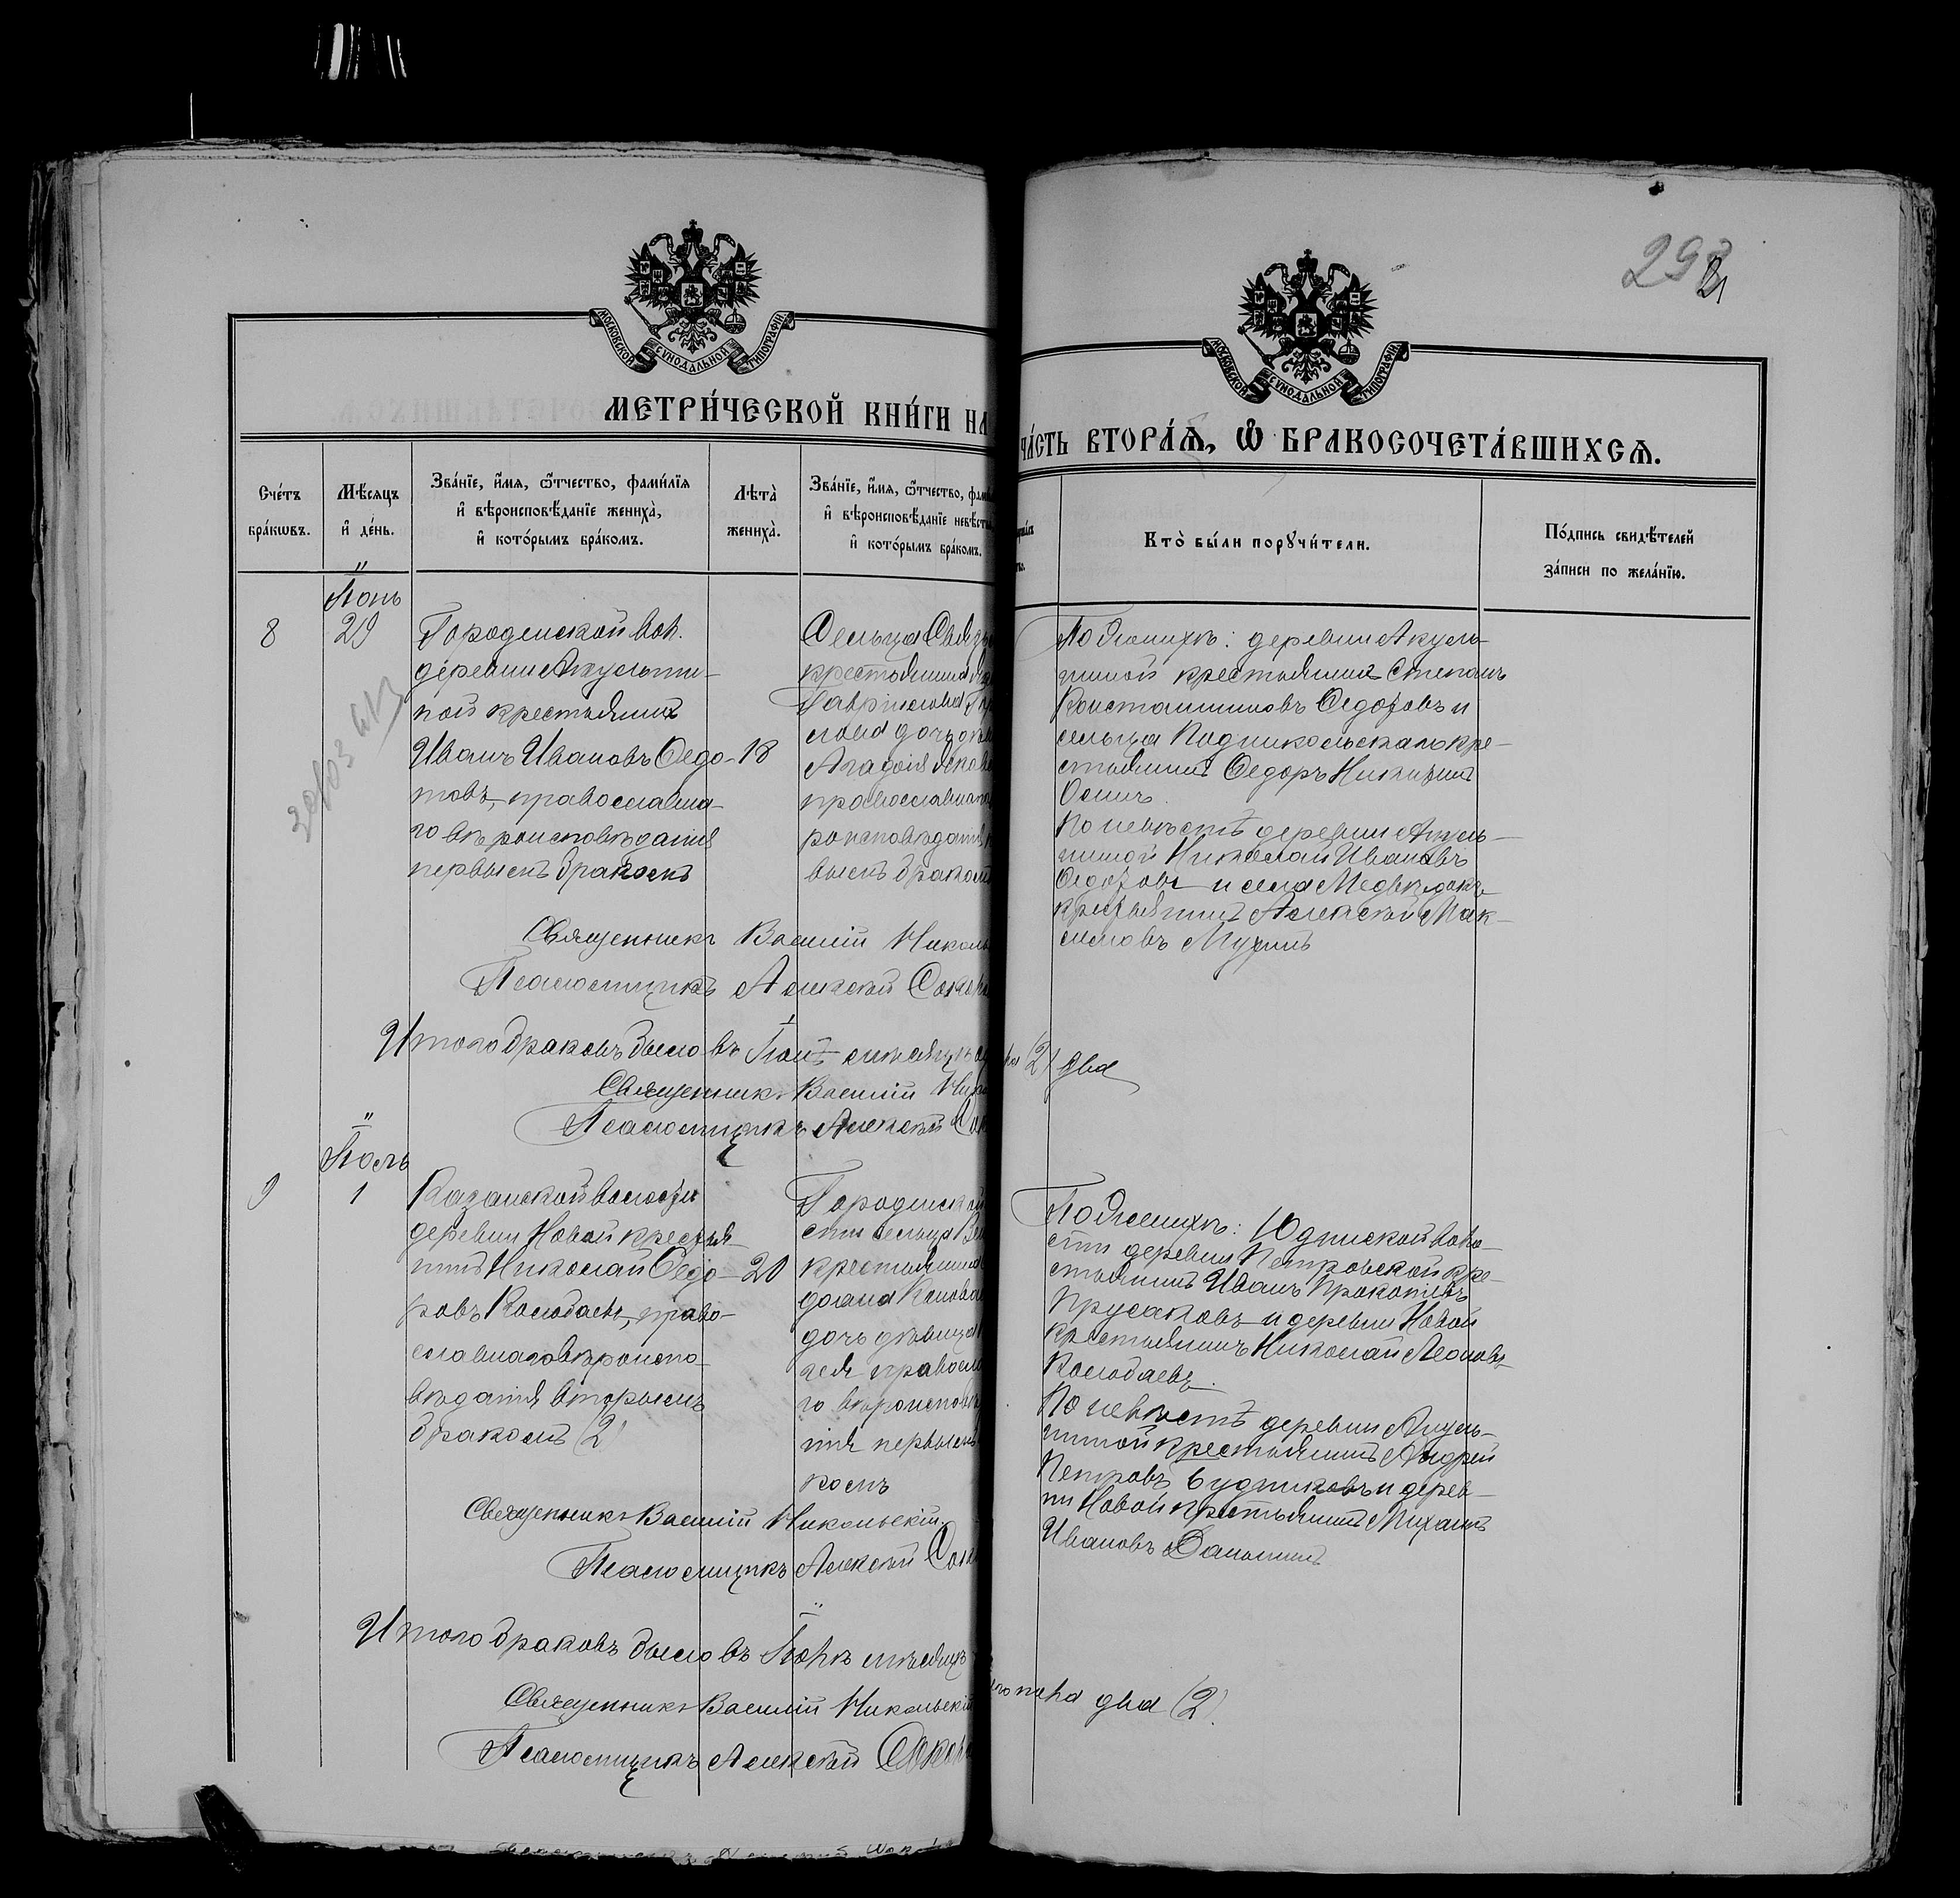 293
МОСКОВСКОЙ СУНОДАЛЬНОЙ ТИПОГРАФІИ
МОСКОВСКОЙ СУНОДАЛЬНОЙ ТИПОГРАФІИ
МЕТРИ́ЧЕСКОЙ КНИ́ГИ НА
ЧА́СТЬ ВТОРА́Я, Ѡ БРАКОСОЧЕТА́ВШИХСЯ.
Сче́тъ бра́кѡвъ.
Мѣ́сяцъ и҆ де́нь.
Зва́нїе, и҆́мя, ѻ҆́тчество, фами́лїя
и҆ вѣроисповѣ́данїе жениха̀,
и҆ кото́рымъ бра́комъ.
Лѣта̀ жениха̀.
Зва́нїе, и҆́мя, ѻ҆́тчество,
и҆ вѣроисповѣ́данїе
и҆ кото́рымъ бра́комъ.
Кто̀ бы́ли порꙋчи́тели.
По́дпись свидѣ́телей
за́писи по жела́нїю.
Іюнь
8
29
Городенской вол.
деревни Акульни-
ной крестьянинъ
Иванъ Ивановъ Ѳедо-
товъ, православна-
го вѣроисповѣданія
первымъ бракомъ
18
Сельца
крестьянина
Гаврилова
дочь
православна
роисповѣданія
вымъ бракомъ
По женихѣ: деревни Акуль-
ниной крестьянинъ Степанъ
Константиновъ Ѳедотовъ и
сельца Подникольскаго кре-
стьянинъ Ѳедоръ Никитинъ
По невѣстѣ деревни Акуль-
ниной Николай Ивановъ
Ѳедотовъ и села
крестьянинъ Алексѣй Мак-
симовъ Мухинъ
Священникъ Василій Николь
Псаломщикъ Алексѣй
Итого браковъ было въ Іюнѣ мѣсяцѣ
(2) два
Священникъ Василій
Псаломщикъ Алексѣй
Іюль
9
1
Казанской волости
деревни Новой крестья-
нинъ Николай Ѳедо-
ровъ Колобаевъ, право-
славнаго вѣроиспо-
вѣданія вторымъ
бракомъ (2)
20
Городенской
сти сельца
крестьянина
дочь дѣвица
го вѣроисповѣ
нія первымъ
комъ
По женихѣ: Юдинской воло-
сти деревни Петровской кре-
стьянинъ Иванъ Прокопіевъ
Прусаковъ и деревни Новой
крестьянинъ Николай Леоновъ
Колобаевъ.
По невѣстѣ деревни Акуль-
ниной крестьянинъ Андрей
Петровъ Будниковъ и дерев-
ни Новой крестьянинъ Михаилъ
Ивановъ Данилинъ
Священникъ Василій Никольскій.
Псаломщикъ Алексѣй
Итого браковъ было въ Іюнѣ мѣсяцѣ
два (2).
Священникъ Василій Никольскій
Псаломщикъ Алексѣй